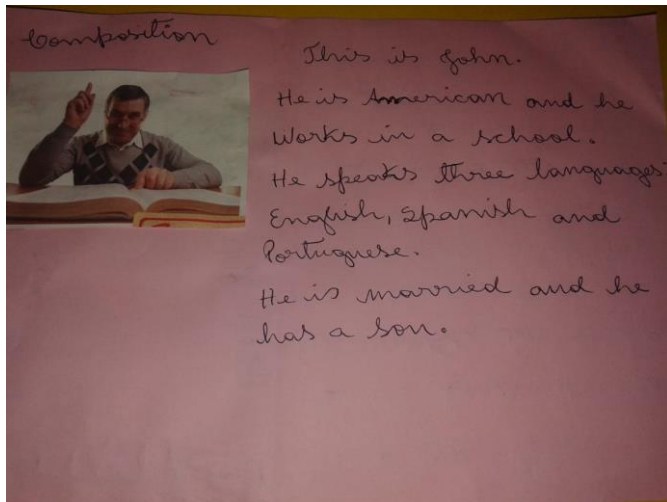 Composition
This is John.
He is American and he
works in a school.
He speaks three languages
English, Spanish and
Portuguese.
He is married and he
has a son.